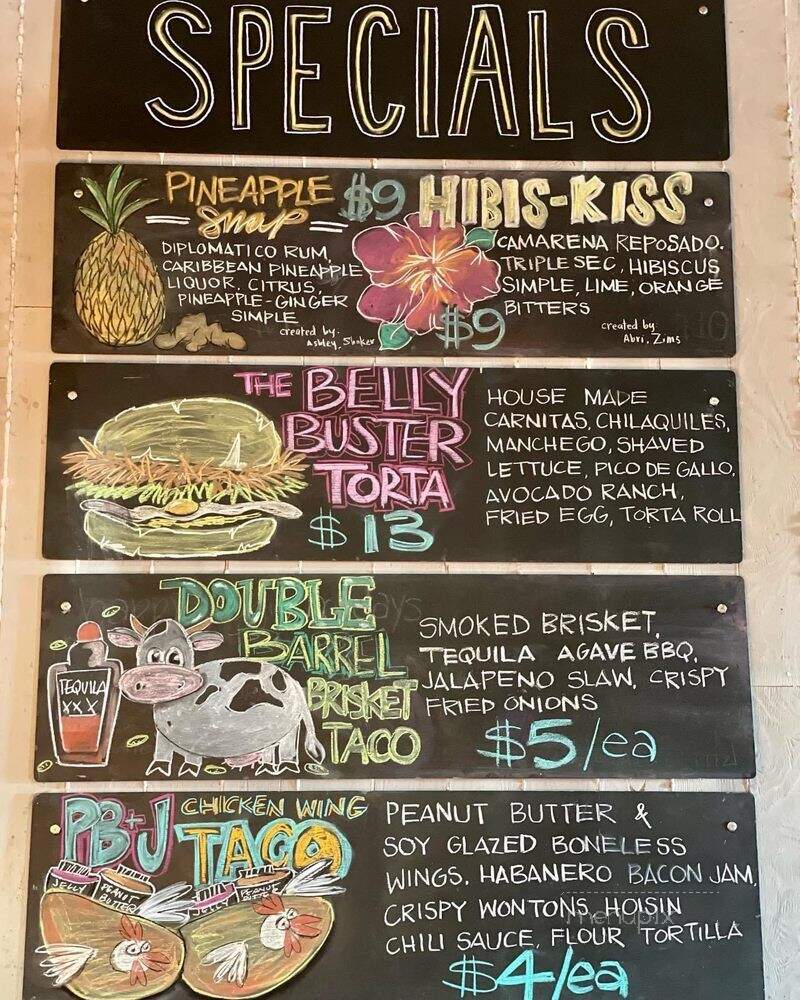 SPECIALS
PINEAPPLE
Snap
$9
DIPLOMATICO RUM,
CARIBBEAN PINEAPPLE
LIQUOR, CITRUS,
PINEAPPLE-GINGER
SIMPLE
created by:
Ashley, Shaker
HIBIS-KISS
CAMARENA REPOSADO.
TRIPLE SEC, HIBISCUS
SIMPLE, LIME, ORANGE
BITTERS
$9
created by:
Abri, Zims
THE BELLY
BUSTER
TORTA
$13
HOUSE MADE
CARNITAS, CHILAQUILES,
MANCHEGO, SHAVED
LETTUCE, PICO DE GALLO,
AVOCADO RANCH,
FRIED EGG, TORTA ROLL
TEQUILA
XXX
DOUBLE
BARREL
BRISKET
TACO
SMOKED BRISKET,
TEQUILA AGAVE BBQ,
JALAPENO SLAW, CRISPY
FRIED ONIONS
$5/ea
PB+J CHICKEN WING
TACO
JELLY
PEANUT
BUTTER
JELLY
PEANUT
PEANUT BUTTER &
SOY GLAZED BONELESS
WINGS, HABANERO BACON JAM,
CRISPY WONTONS, HOISIN
CHILI SAUCE, FLOUR TORTILLA
$4/ea
menupix